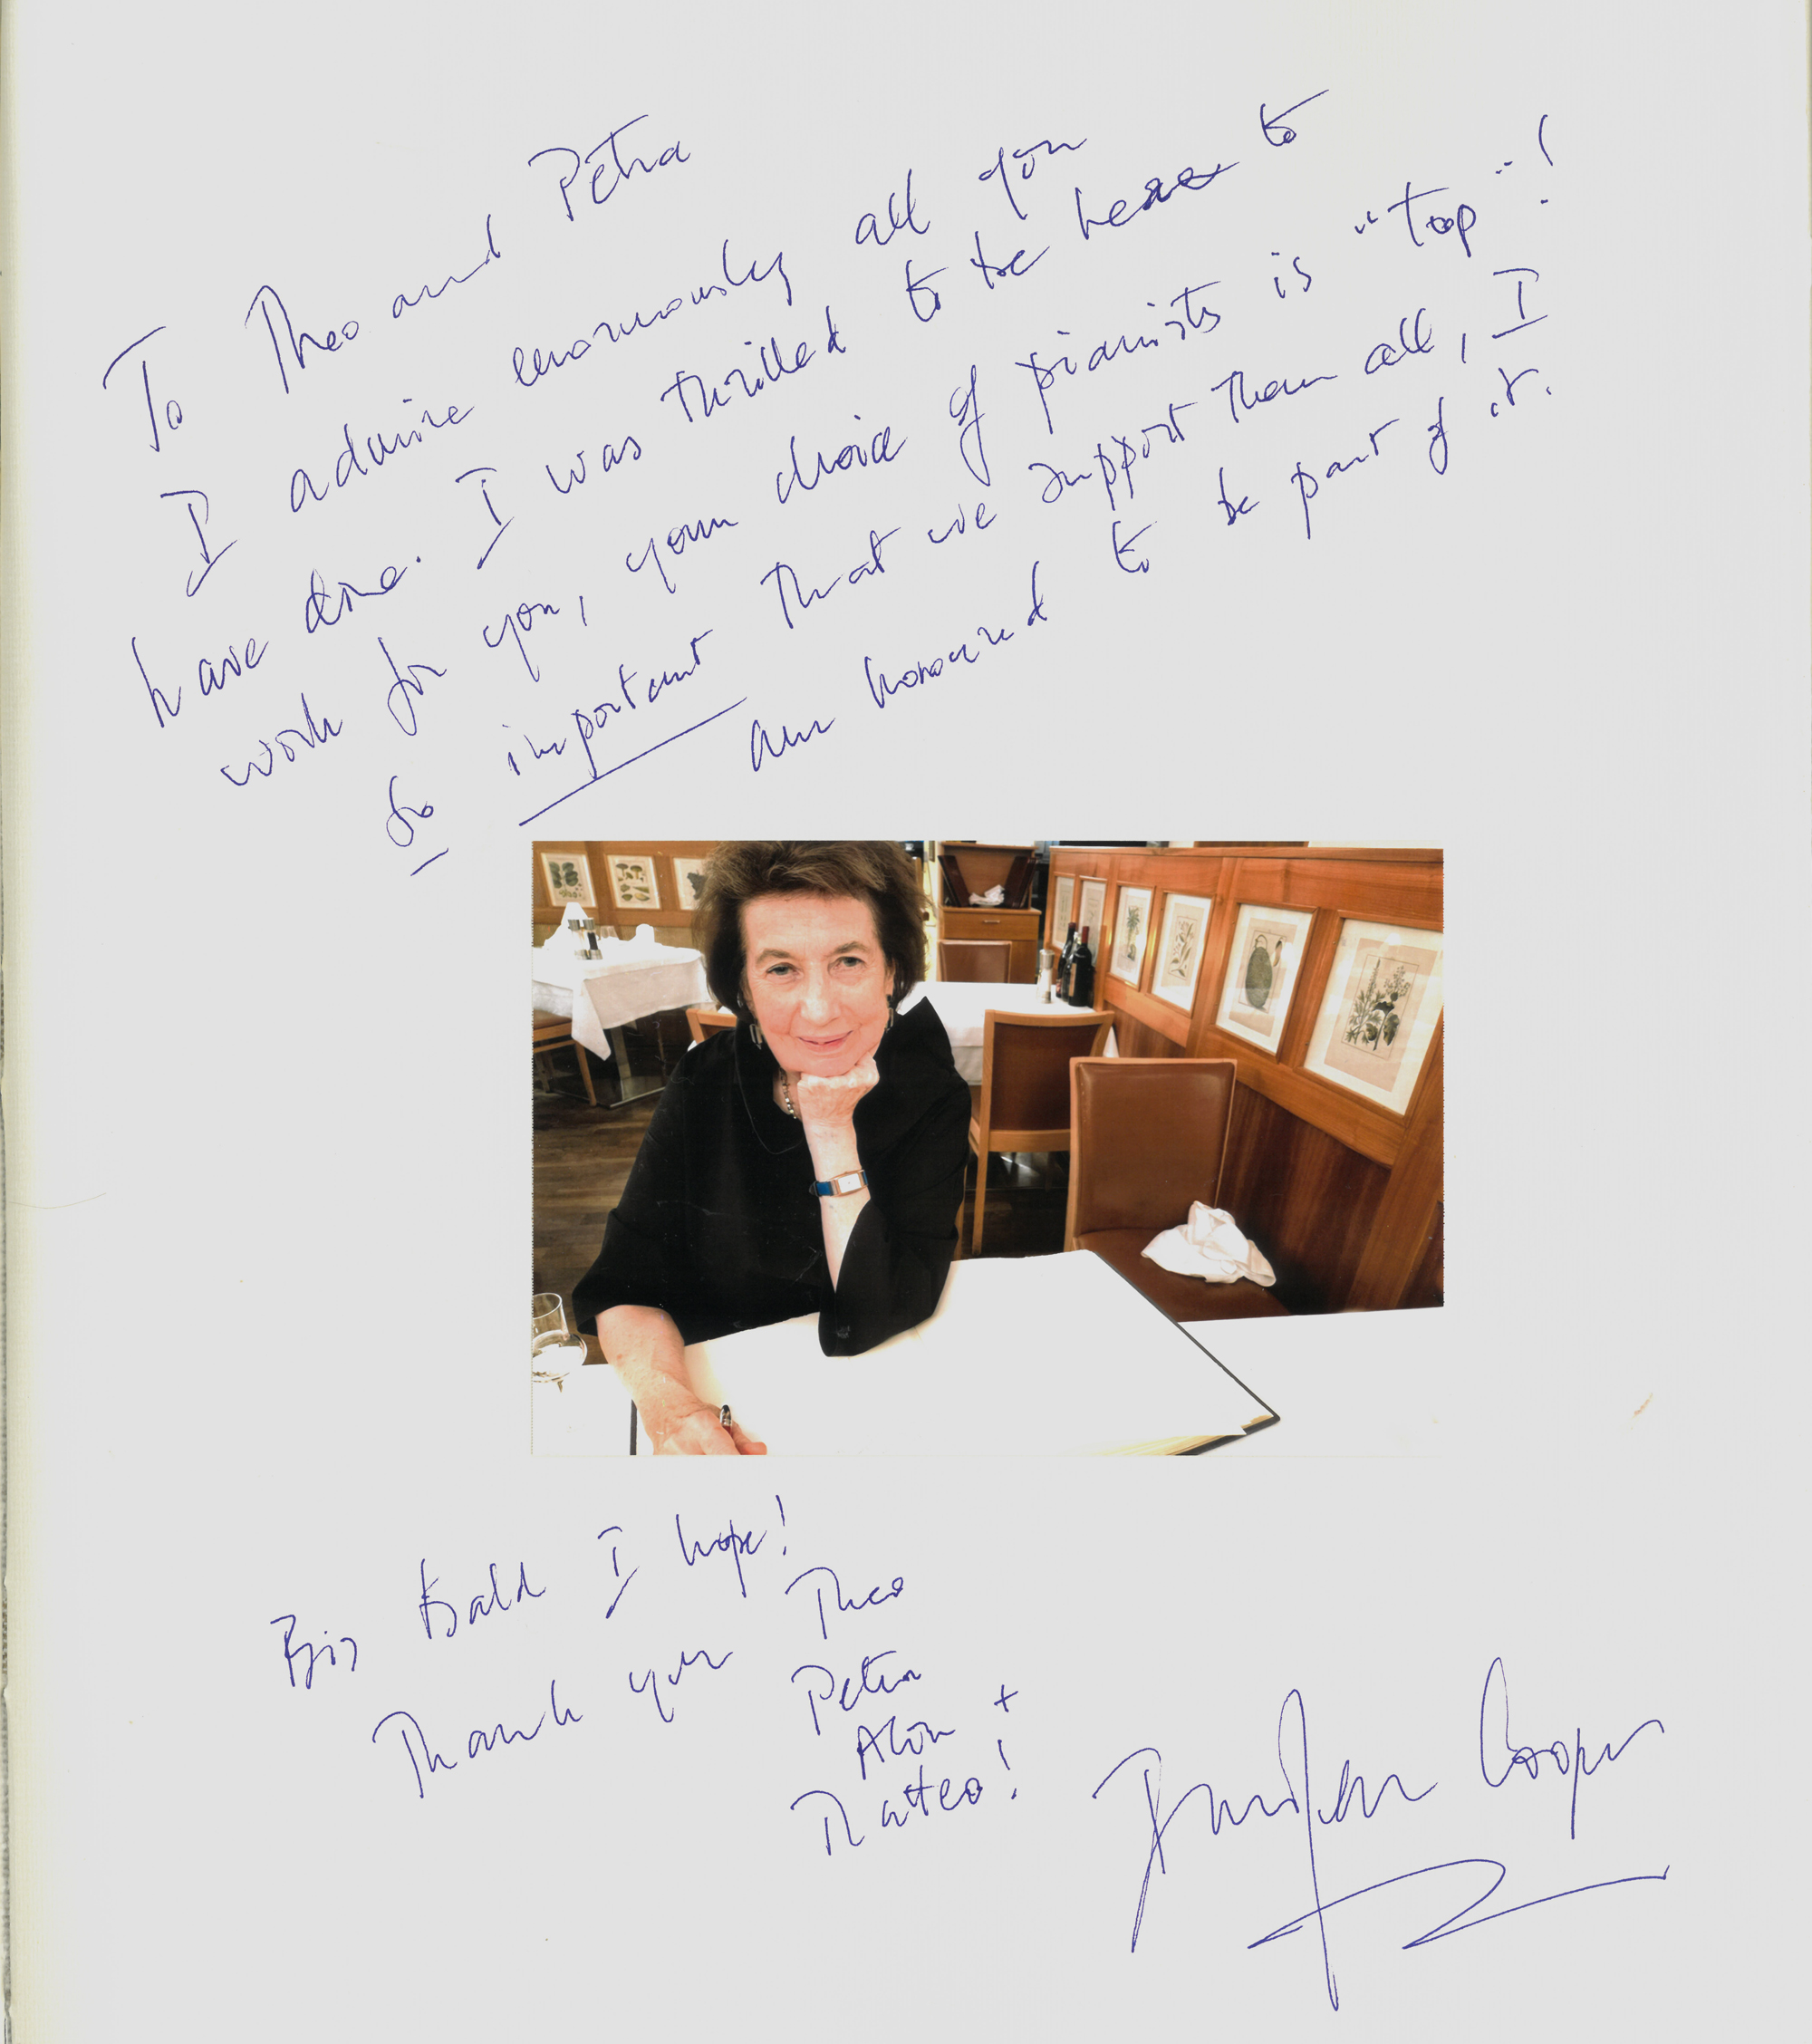 To Theo and Petra
I admire enormously all you
have done. I was thrilled to be here to
work for you, your choice of pianists is "top"!
So important that we support them all, I
am honoured to be part of it.
Bis bald I hope!
Thank you Theo
Petra
Alon +
Matteo!
Imogen Cooper